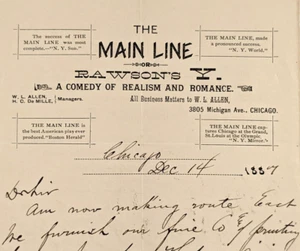 The success of
THE MAIN LINE was most
complete.—"N. Y. Sun."
THE MAIN LINE, made
a pronounced success.
"N. Y. World."
THE
MAIN LINE
-OR-
RAWSON'S Y.
A COMEDY OF REALISM AND ROMANCE.
W. L. ALLEN,
H. C. De MILLE, Managers.
All Business Matters to W. L. ALLEN,
3805 Michigan Ave., CHICAGO.
THE MAIN LINE is
the best American play ever
produced. "Boston Herald"
THE MAIN LINE cap-
tures Chicago at the Grand,
St. Louis at the Olympic
"N. Y. Mirror."
Chicago
Dec 14 1887
Dr Sir
Am now making route East
We furnish our fine printing